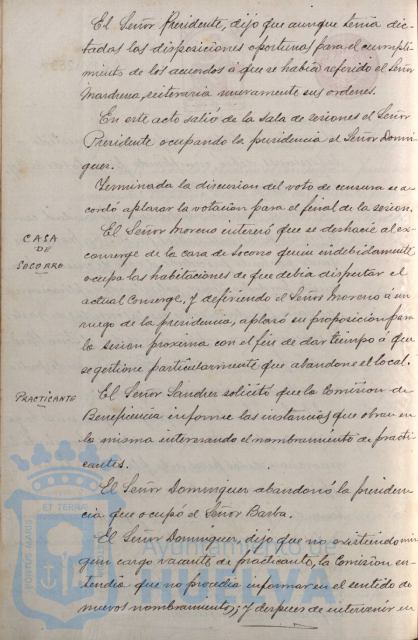 El Señor Presidente, dijo que aunque tenia dic-
tadas las disposiciones oportunas para el cumpli-
miento de los acuerdos a que se habia referido el Señor
, reiteraria nuevamente sus ordenes.
En este acto salió de la Sala de sesiones el Señor
Presidente ocupando la presidencia el Señor Domin-
guez.
Terminada la discusion del voto de censura se a-
cordó aplazar la votación para el final de la sesion.
CASA
DE
SOCORRO
El Señor Moreno interesó que se deshacie al ex-
converge de la casa de socorro quien indebidamente
ocupa las habitaciones de que debia disfrutar el
actual Converge, y defiriendo el Señor Moreno á un
ruego de la presidencia, aplazó su proposicion para
la sesion proxima con el fin de dar tiempo a que
se gestione particularmente que abandone el local.
PRACTICANTE
El Señor Sanchez solicitó que la Comision de
Beneficencia informe las instancias que obran en
la misma interesando el nombramiento de practi-
cantes.
El Señor Dominguez abandonó la presiden-
cia que ocupó el Señor Barba.
El Señor Dominguez, dijo que no existiendo nin-
gun cargo vacante de practicante, la Comision en-
tendia que no procedia informar en el sentido de
nuevos nombramientos; y despues de intervenir en
PORTUS MARIS
ET TERRÆ
Ayuntamiento de